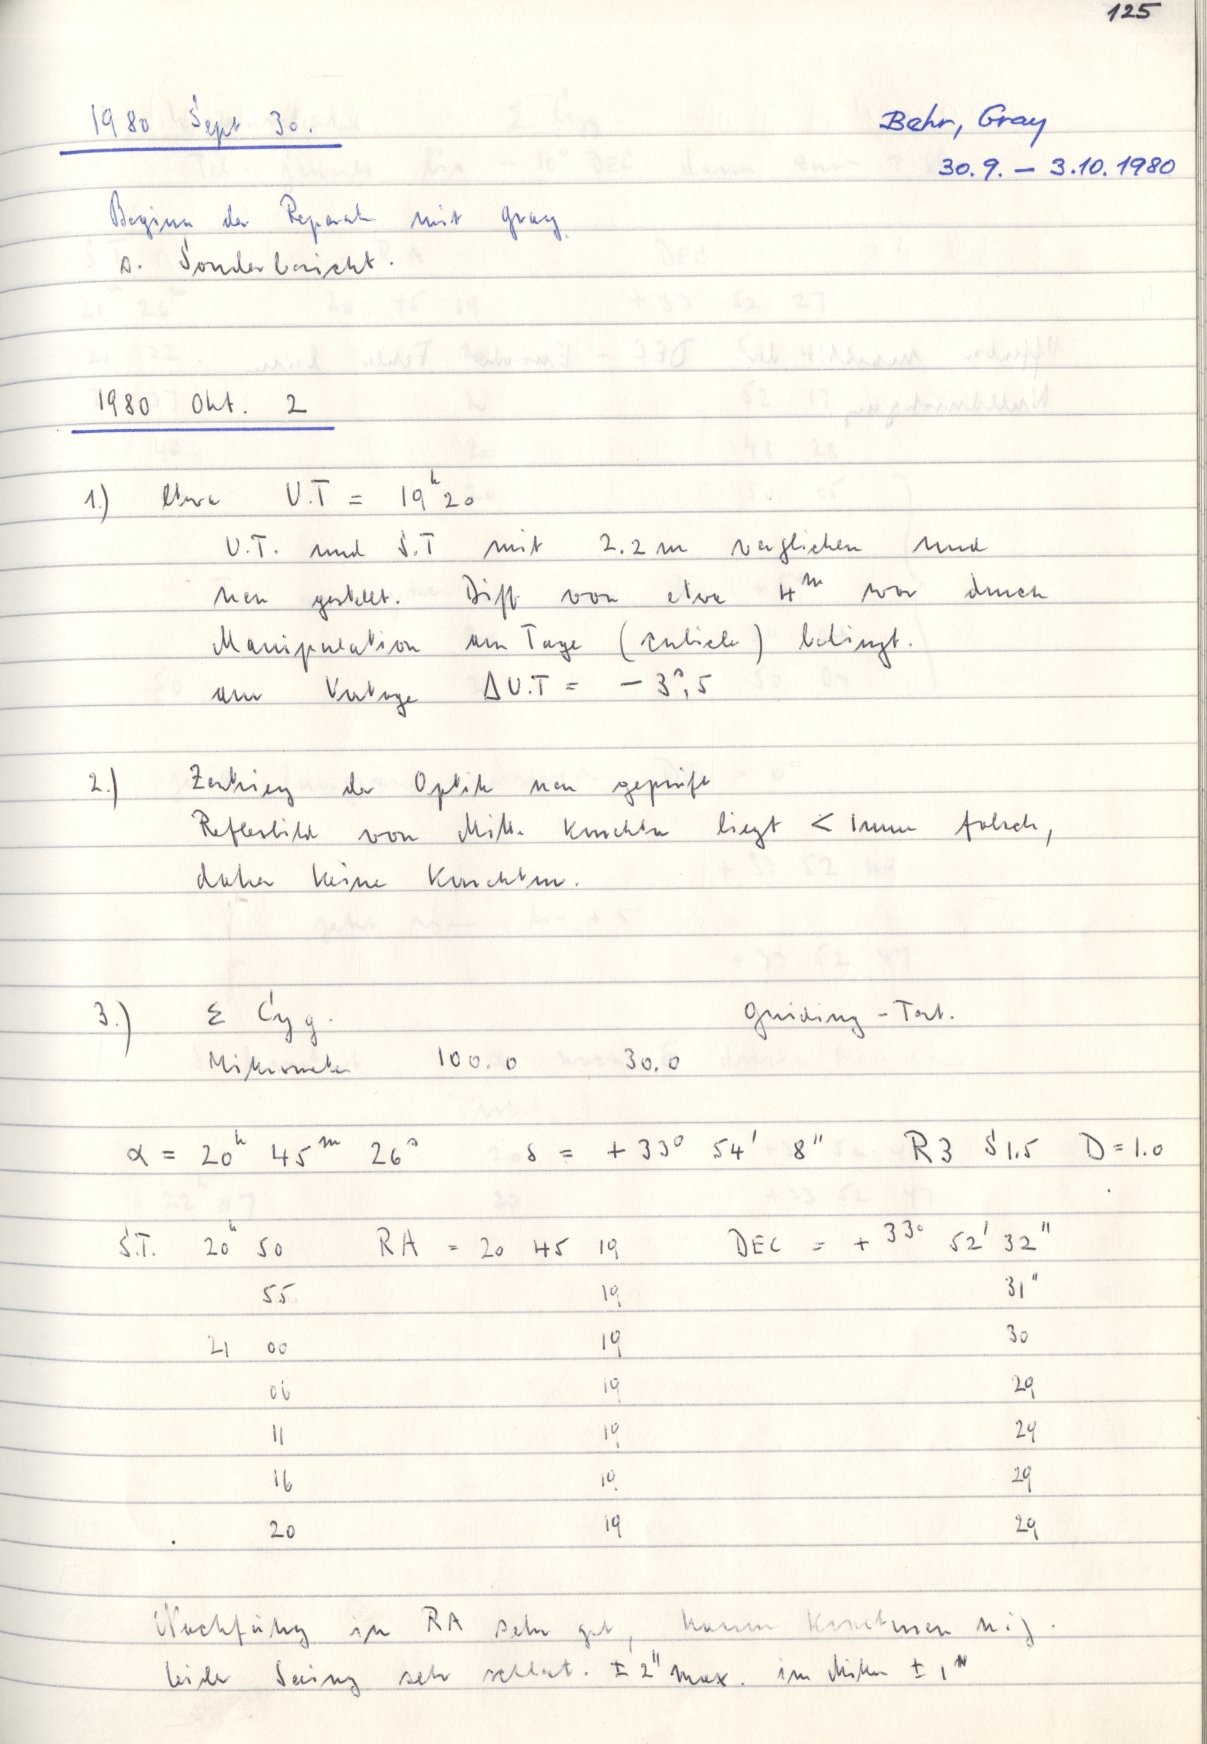 125
1980 Sept 30.
Behr, Gray
30.9. – 3.10.1980
Beginn der Reparatur mit Gray.
s. Sonderbericht.
1980 Okt. 2
1.) Etwa U.T = 19h20
U.T. und S.T mit 2.2 m verglichen und
neu gestellt. Diff von etwa 4m war durch
Manipulation am Tage ( ) bedingt.
am Vortage ΔU.T = – 3s,5
2.) der Optik neu geprüft
Reflexbild von liegt < 1mm falsch,
daher keine Korrektur.
3.) ε Cyg. Guiding – Test.
Mikrometer 100.0 30.0
α = 20h 45m 26s δ = + 33° 54' 8" R3 S1.5 D=1.0
S.T. 20h 50 RA = 20 45 19 DEC = + 33° 52' 32"
55 19 31"
21 00 19 30
06 19 29
11 19 29
16 19 29
20 19 29
Nachführung in RA sehr gut, kaum Korrekturen nötig.
leider Seeing sehr schlecht. ± 2" max. im Mittel ± 1"